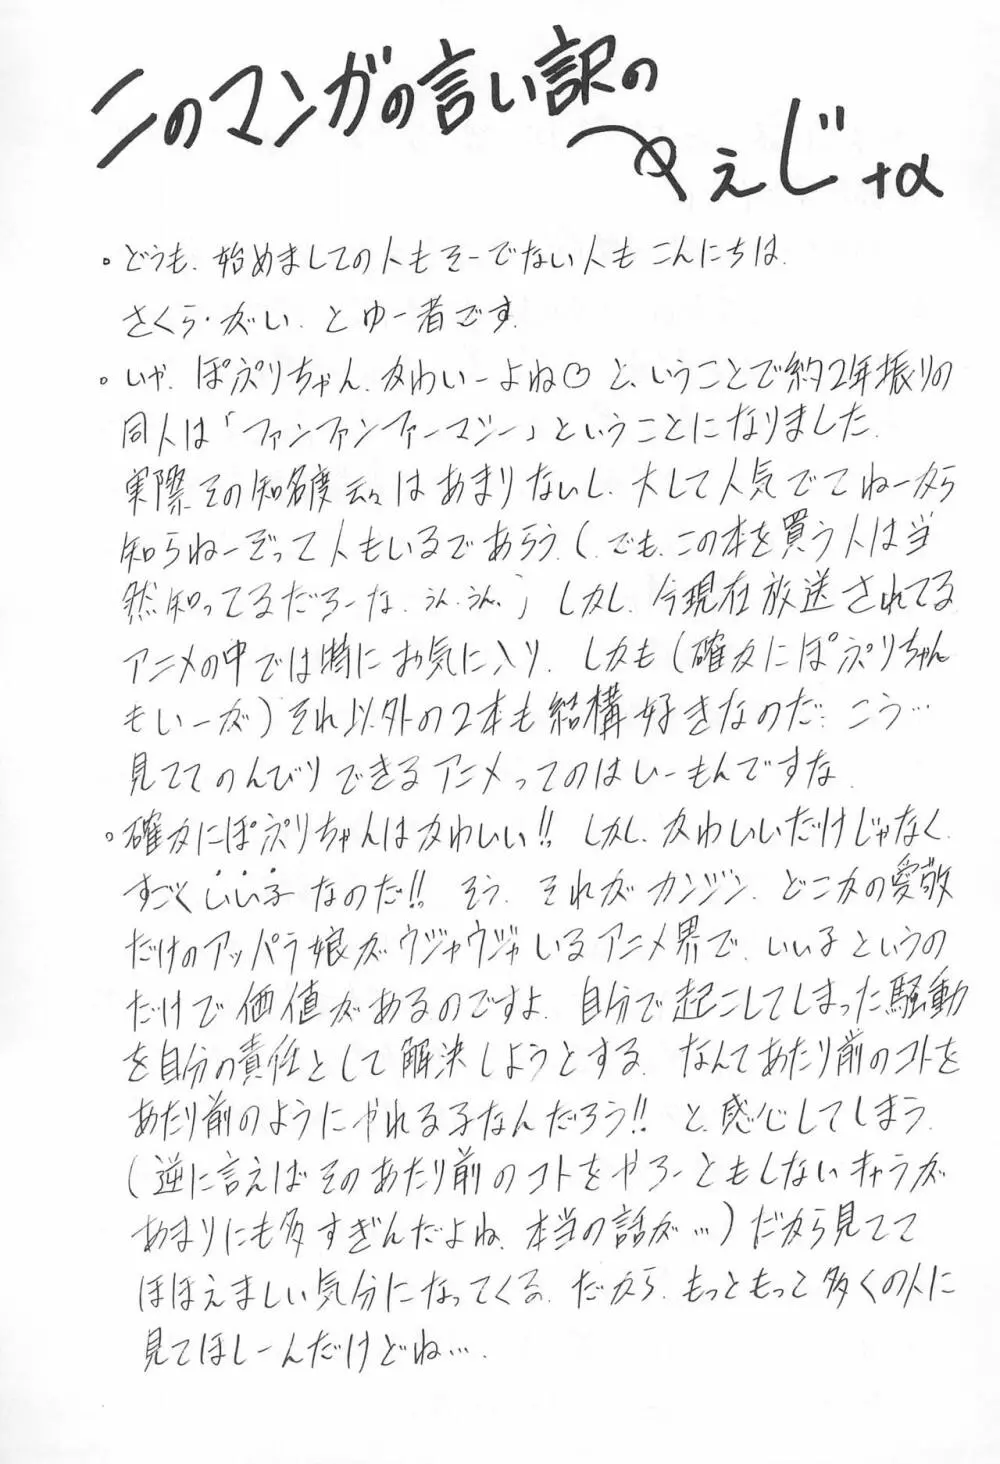 このマンガの言い訳の
ぺぇじ+α
。どうも、始めましての人もそーでない人もこんにちは。
さくら・がい、とゆー者です。
。いや、ぽぷりちゃん、かわいーよね♡ と、いうことで約2年振りの
同人は「ファンファンファーマシー」ということになりました。
実際その知名度云々はあまりないし、大して人気でてねーから
知らねーぞって人もいるであろう。(でも、この本を買う人は当
然知ってるだろーな、うん、うん。) しかし、今現在放送されてる
アニメの中では特にお気に入り、しかも(確かにぽぷりちゃん
もいーが)それ以外の2本も結構好きなのだ。こう…
見ててのんびりできるアニメってのはいーもんですな。
。確かにぽぷりちゃんはかわいい!! しかし、かわいいだけじゃなく、
すごくいい子なのだ!! そう、それがカンジン、どこかの愛敬
だけのアッパラ娘がウジャウジャいるアニメ界で、いい子というの
だけで価値があるのですよ。自分で起こしてしまった騒動
を自分の責任として解決しようとする。なんてあたり前のコトを
あたり前のようにやれる子なんだろう!! と、感心してしまう。
(逆に言えばそのあたり前のコトをやろーともしないキャラが
あまりにも多すぎんだよね、本当の話が…)だから見てて
ほほえましい気分になってくる。だから、もっともっと多くの人に
見てほしーんだけどね…。